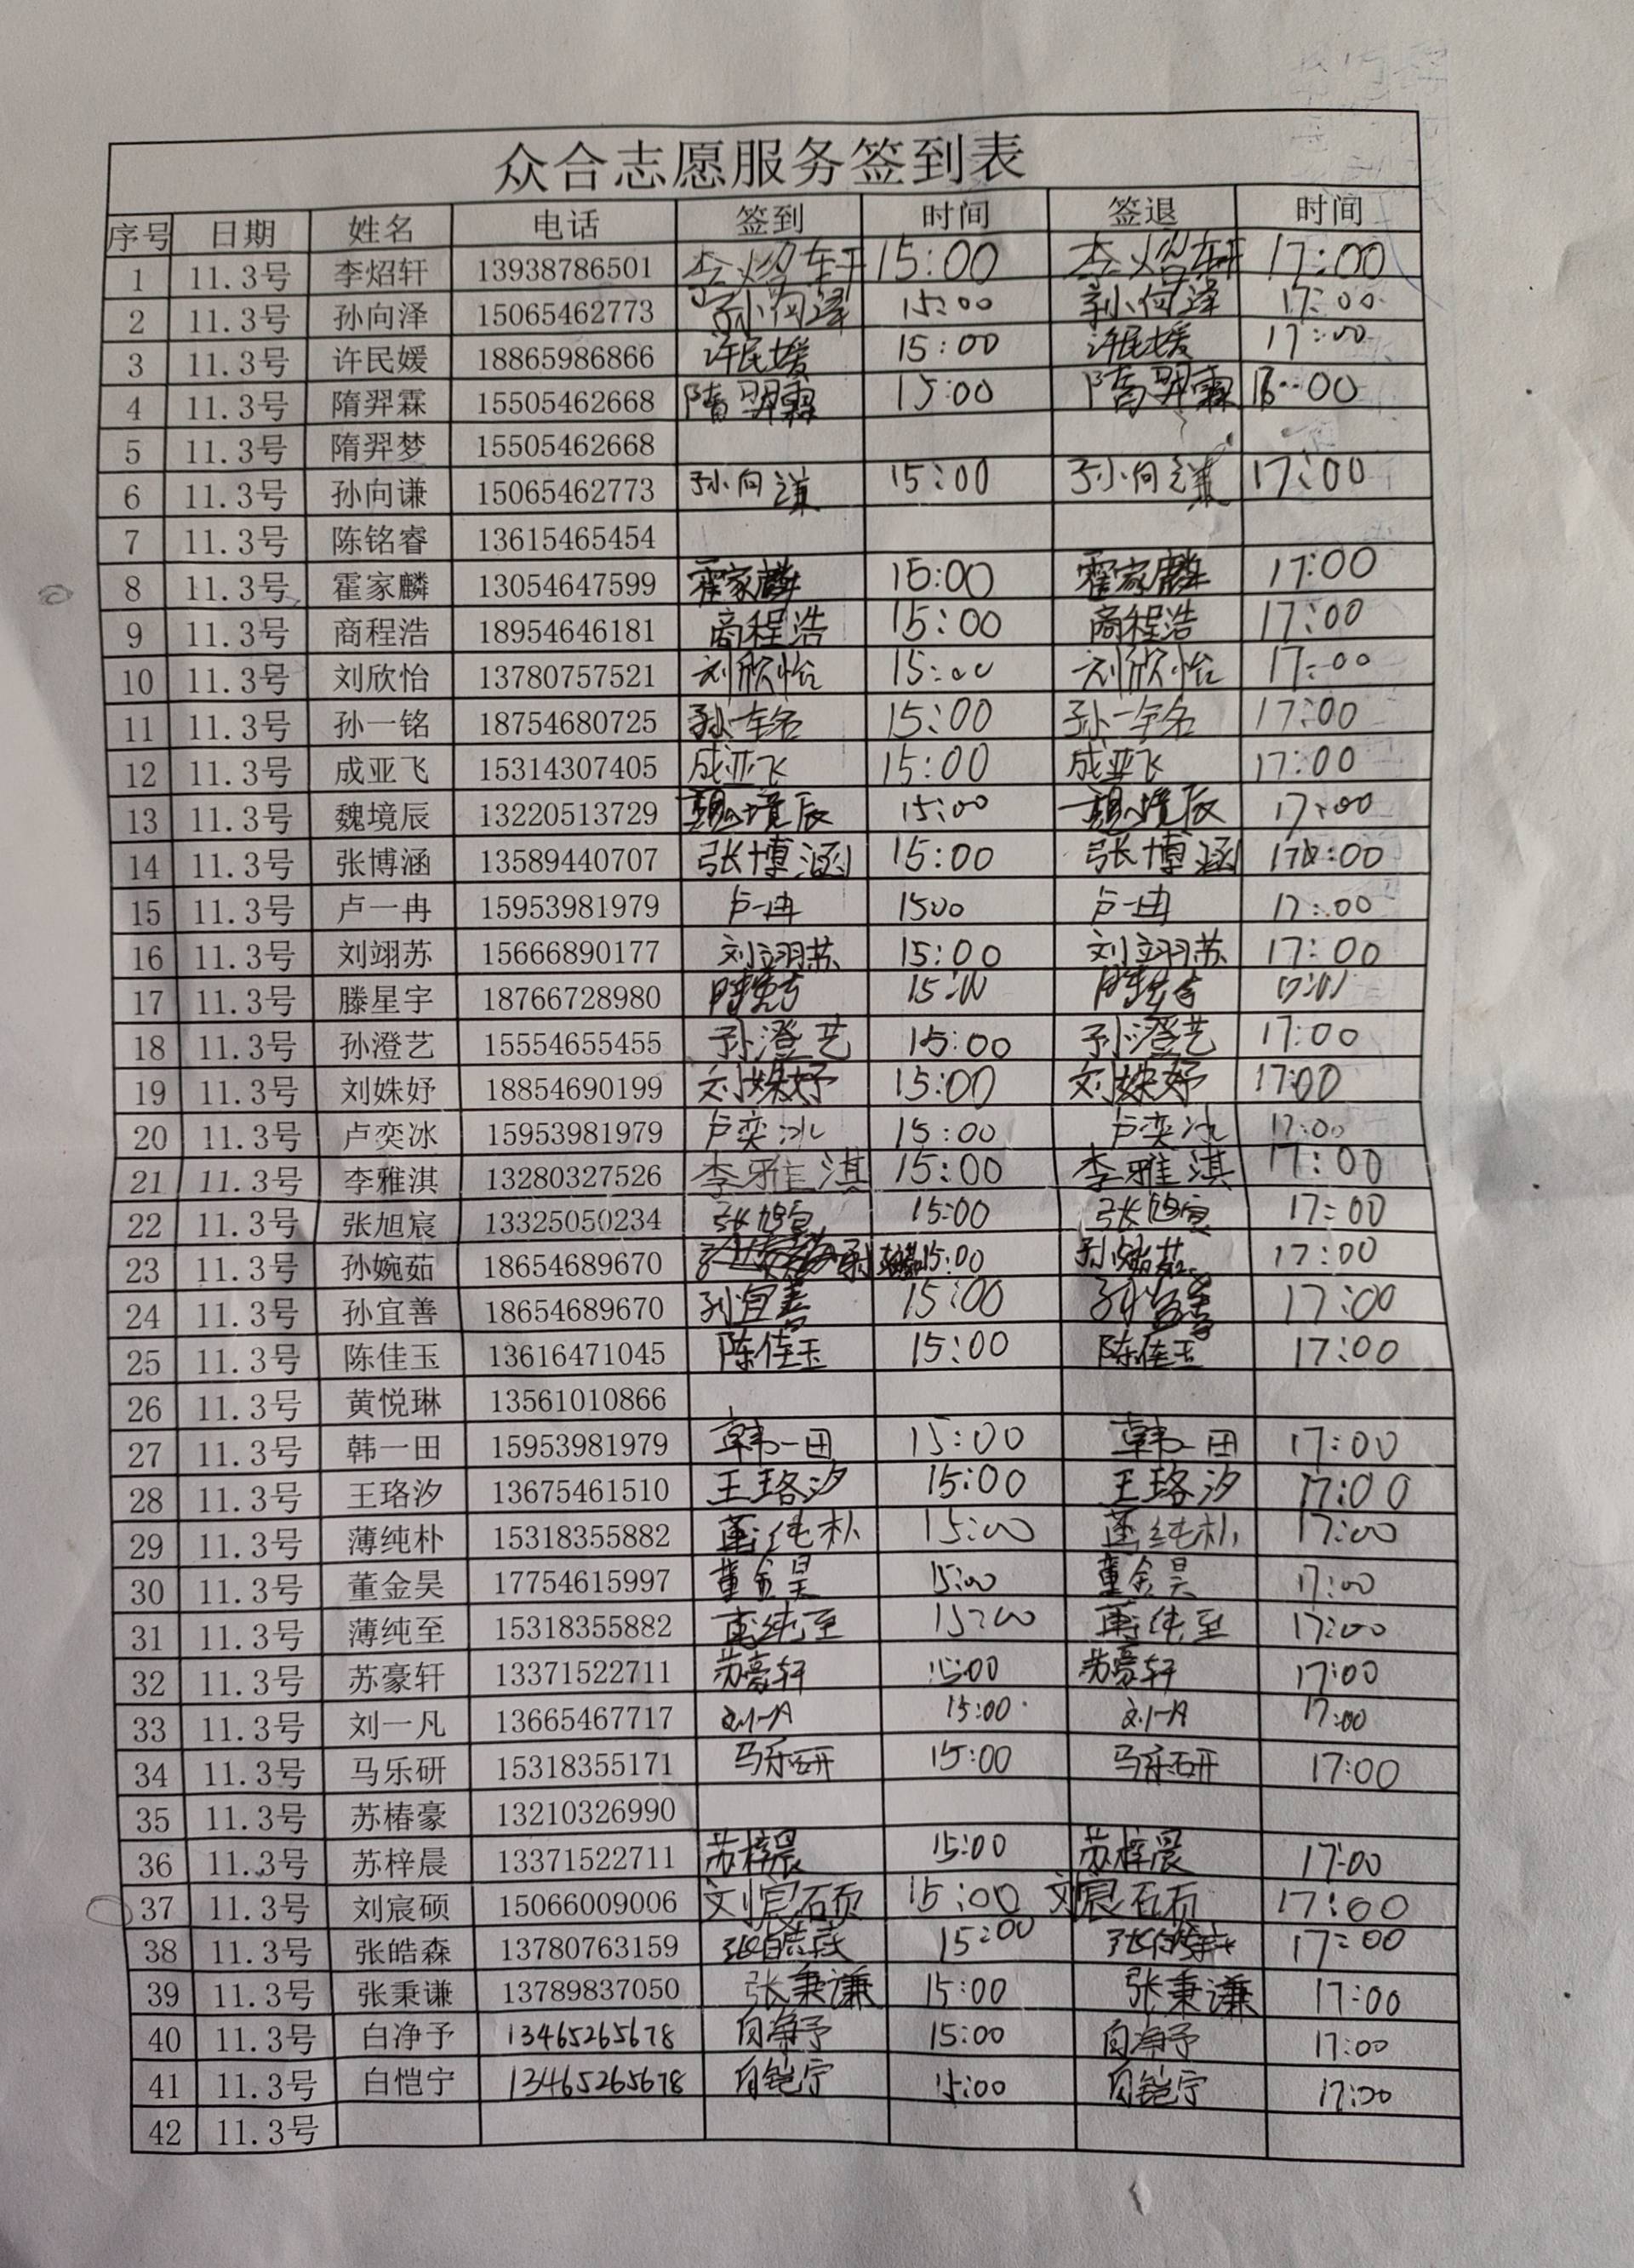 众合志愿服务签到表
序号 日期 姓名 电话 签到 时间 签退 时间
1 11.3号 李炤轩 13938786501 李炤轩 15:00 李炤轩 17:00
2 11.3号 孙向泽 15065462773 孙向泽 15:00 孙向泽 17:00
3 11.3号 许民媛 18865986866 许民媛 15:00 许民媛 17:00
4 11.3号 隋羿霖 15505462668 隋羿霖 15:00 隋羿霖 :00
5 11.3号 隋羿梦 15505462668
6 11.3号 孙向谦 15065462773 孙向谦 15:00 孙向谦 17:00
7 11.3号 陈铭睿 13615465454
8 11.3号 霍家麟 13054647599 霍家麟 15:00 霍家麟 17:00
9 11.3号 商程浩 18954646181 商程浩 15:00 商程浩 17:00
10 11.3号 刘欣怡 13780757521 刘欣怡 15:00 刘欣怡 17:00
11 11.3号 孙一铭 18754680725 孙一铭 15:00 孙一铭 17:00
12 11.3号 成亚飞 15314307405 成亚飞 15:00 成亚飞 17:00
13 11.3号 魏境辰 13220513729 魏境辰 15:00 魏境辰 17:00
14 11.3号 张博涵 13589440707 张博涵 15:00 张博涵 17:00
15 11.3号 卢一冉 15953981979 卢一冉 1500 卢一冉 17:00
16 11.3号 刘翊苏 15666890177 刘翊苏 15:00 刘翊苏 17:00
17 11.3号 滕星宇 18766728980 15:00 17:00
18 11.3号 孙澄艺 15554655455 孙澄艺 15:00 孙澄艺 17:00
19 11.3号 刘姝妤 18854690199 刘姝妤 15:00 刘姝妤 17:00
20 11.3号 卢奕冰 15953981979 卢奕冰 15:00 卢奕冰 17:00
21 11.3号 李雅淇 13280327526 李雅淇 15:00 李雅淇 17:00
22 11.3号 张旭宸 13325050234 张旭宸 15:00 张旭宸 17:00
23 11.3号 孙婉茹 18654689670 15:00 孙婉茹 17:00
24 11.3号 孙宜善 18654689670 孙宜善 15:00 孙宜善 17:00
25 11.3号 陈佳玉 13616471045 陈佳玉 15:00 陈佳玉 17:00
26 11.3号 黄悦琳 13561010866
27 11.3号 韩一田 15953981979 韩一田 15:00 韩一田 17:00
28 11.3号 王珞汐 13675461510 王珞汐 15:00 王珞汐 17:00
29 11.3号 薄纯朴 15318355882 薄纯朴 15:00 薄纯朴 17:00
30 11.3号 董金昊 17754615997 董金昊 15:00 董金昊 17:00
31 11.3号 薄纯至 15318355882 薄纯至 15:00 薄纯至 17:00
32 11.3号 苏豪轩 13371522711 苏豪轩 15:00 苏豪轩 17:00
33 11.3号 刘一凡 13665467717 刘一凡 15:00 刘一凡 17:00
34 11.3号 马乐研 15318355171 马乐研 15:00 马乐研 17:00
35 11.3号 苏椿豪 13210326990
36 11.3号 苏梓晨 13371522711 苏梓晨 15:00 苏梓晨 17:00
37 11.3号 刘宸硕 15066009006 刘宸硕 15:00 刘宸硕 17:00
38 11.3号 张皓森 13780763159 张皓森 15:00 张皓森 17:00
39 11.3号 张秉谦 13789837050 张秉谦 15:00 张秉谦 17:00
40 11.3号 白净予 13465265678 白净予 15:00 白净予 17:00
41 11.3号 白恺宁 13465265678 白恺宁 15:00 白恺宁 17:00
42 11.3号